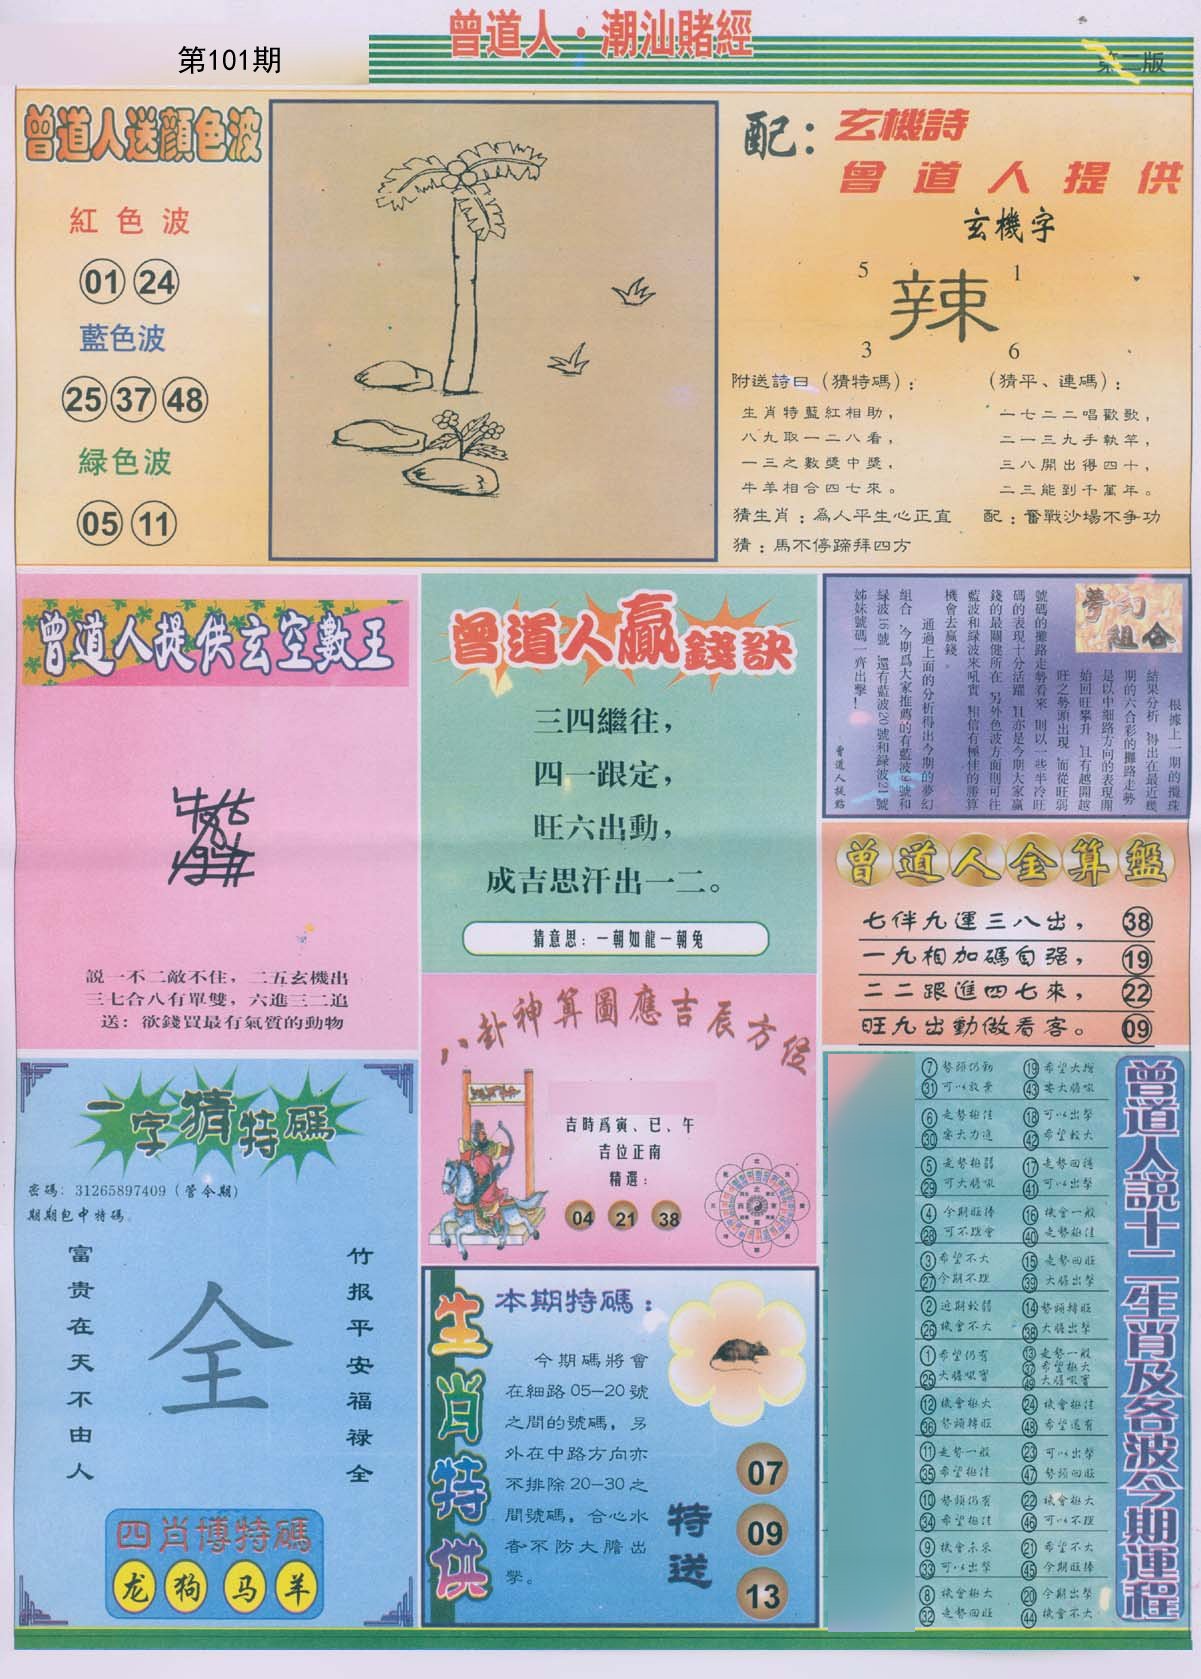 第101期
曾道人·潮汕賭經
第二版
曾道人送顔色波
紅色波
01 24
藍色波
25 37 48
緑色波
05 11
配：玄機詩
曾道人提供
玄機字
5 1
辣
3 6
附送詩曰（猜特碼）：
生肖特藍紅相助，
八九取一二八看，
一三之數獎中獎，
牛羊相合四七來。
（猜平、連碼）：
一七二二唱歡歌，
二一三九手執竿，
三八開出得四十，
二三能到千萬年。
猜生肖：爲人平生心正直
配：奮戰沙場不争功
猜：馬不停蹄拜四方
曾道人提供玄空數王
説一不二敵不住，二五玄機出
三七合八有單雙，六進三二追
送：欲錢買最有氣質的動物
曾道人贏錢訣
三四繼往，
四一跟定，
旺六出動，
成吉思汗出一二。
猜意思：一朝如龍一朝兔
夢幻組合
根據上一期的攪珠
結果分析，得出在最近幾
期的六合彩的攤路走勢
是以中細路方向的表現開
始回旺攀升，且有越開越
旺之勢頭出現，而從旺弱
號碼的攤路走勢看來，則以一些半冷旺
碼的表現十分活躍，且亦是今期大家贏
錢的最關健所在，另外色波方面則可往
藍波和緑波來吼實，相信有極佳的勝算
機會去贏錢。
通過上面的分析得出今期的夢幻
組合，今期爲大家推薦的有藍波 號和
緑波16號，還有藍波20號和緑波21號
姊妹號碼一齊出擊！
曾道人提點
曾道人金算盤
七伴九運三八出， 38
一九相加碼自强， 19
二二跟進四七來， 22
旺九出動做看客。 09
八卦神算圖應吉辰方位
吉時爲寅、巳、午
吉位正南
精選：
04 21 38
一字猜特碼
密碼：31265897409（管令期）
期期包中特碼。
富贵在天不由人
全
竹报平安福禄全
四肖博特碼
龙 狗 马 羊
生肖特供
本期特碼：
今期碼將會
在細路05—20號
之間的號碼，另
外在中路方向亦
不排除20-30之
間號碼，合心水
者不防大膽出
擊。
特送
07
09
13
曾道人説十二生肖及各波今期運程
7 勢頭仍勁 19 希望大增
31 可以放棄 43 要大膽吼
6 走勢極佳 18 可以出擊
30 要大力追 42 希望較大
5 走勢極弱 17 走勢回落
29 可大膽吼 41 可以出擊
4 今期旺捧 16 機會一般
28 可不理會 40 走勢極佳
3 希望不大 15 走勢回旺
27 今期不理 39 大膽出擊
2 近期較弱 14 勢頭轉旺
26 機會不大 38 大膽出擊
1 希望仍有 13 走勢一般
37 希望極大
25 大膽吼實 49 大膽吼實
12 機會極大 24 機會極佳
36 勢頭轉旺 48 希望還有
11 走勢一般 23 可以出擊
35 希望極佳 47 勢頭回旺
10 勢頭仍有 22 機會極大
34 希望極佳 46 可以不理
9 機會未來 21 希望不大
33 可以出擊 45 今期旺捧
8 機會極大 20 今期出擊
32 走勢回旺 44 機會不大